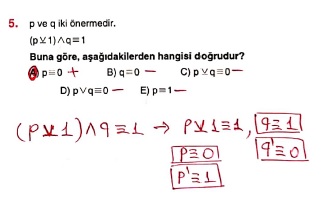 5. p ve q iki önermedir.
(p⊻1)∧q≡1
Buna göre, aşağıdakilerden hangisi doğrudur?
A) p≡0 + B) q≡0 — C) p⊻q≡0 —
D) p∨q≡0 — E) p≡1 —
(p⊻1)∧q≡1 → p⊻1≡1, q≡1
p≡0 q'≡0
p'≡1